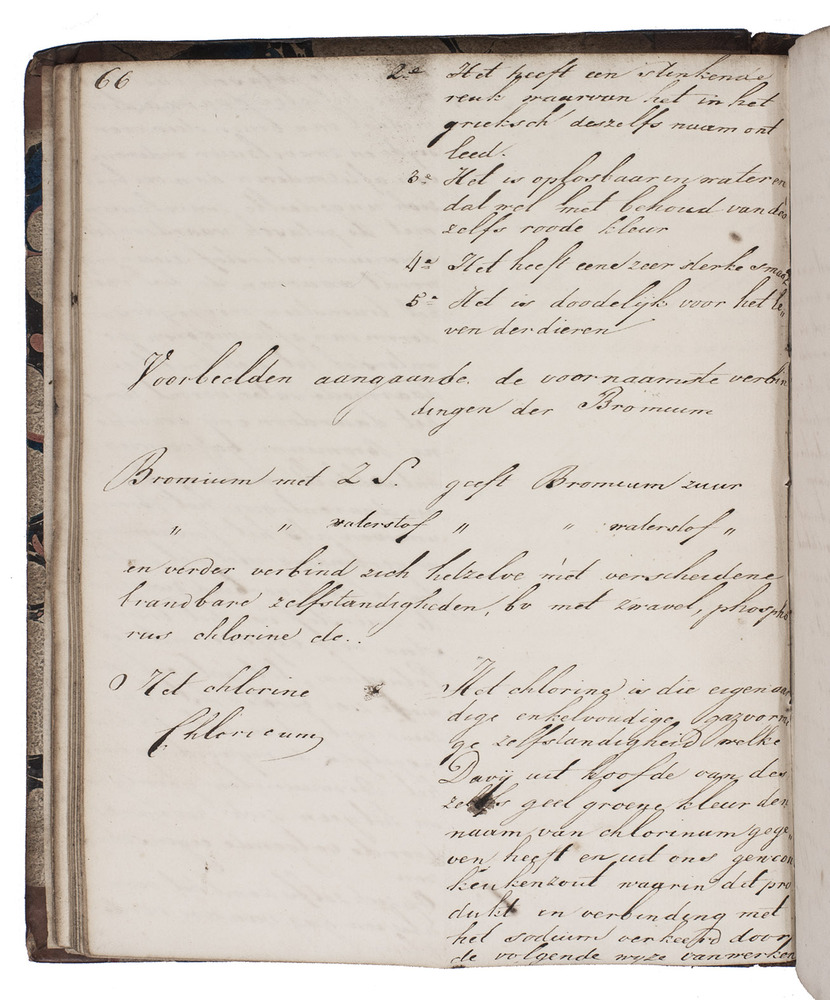 66
2e Het heeft een stinkende
reuk waarvan het in het
grieksch deszelfs naam ont
leed.
3e Het is oplosbaar in water en
dat wel met behoud van des
zelfs roode kleur
4e Het heeft eene zeer sterke smaak
5e Het is doodelijk voor het le„
ven der dieren
Voorbeelden aangaande de voornaamste verbin
dingen der Bromium
Bromium met 2 S. geeft Bromium zuur
„ „ waterstof „ „ waterstof „
en verder verbind zich hetzelve met verscheidene
brandbare zelfstandigheden, bv met zwavel, phospho
rus chlorine &c..
O Het chlorine
Chloricum
Het chlorine is die eigenaar
dige enkelvoudige gazvormi
ge zelfstandigheid welke
Davij uit hoofde van des
zelfs geel groene kleur den
naam van chlorinum gege„
ven heeft en uit ons gewoon
keukenzout waarin dit pro
dukt in verbinding met
het sodium verkeerd door
de volgende wyze van werken